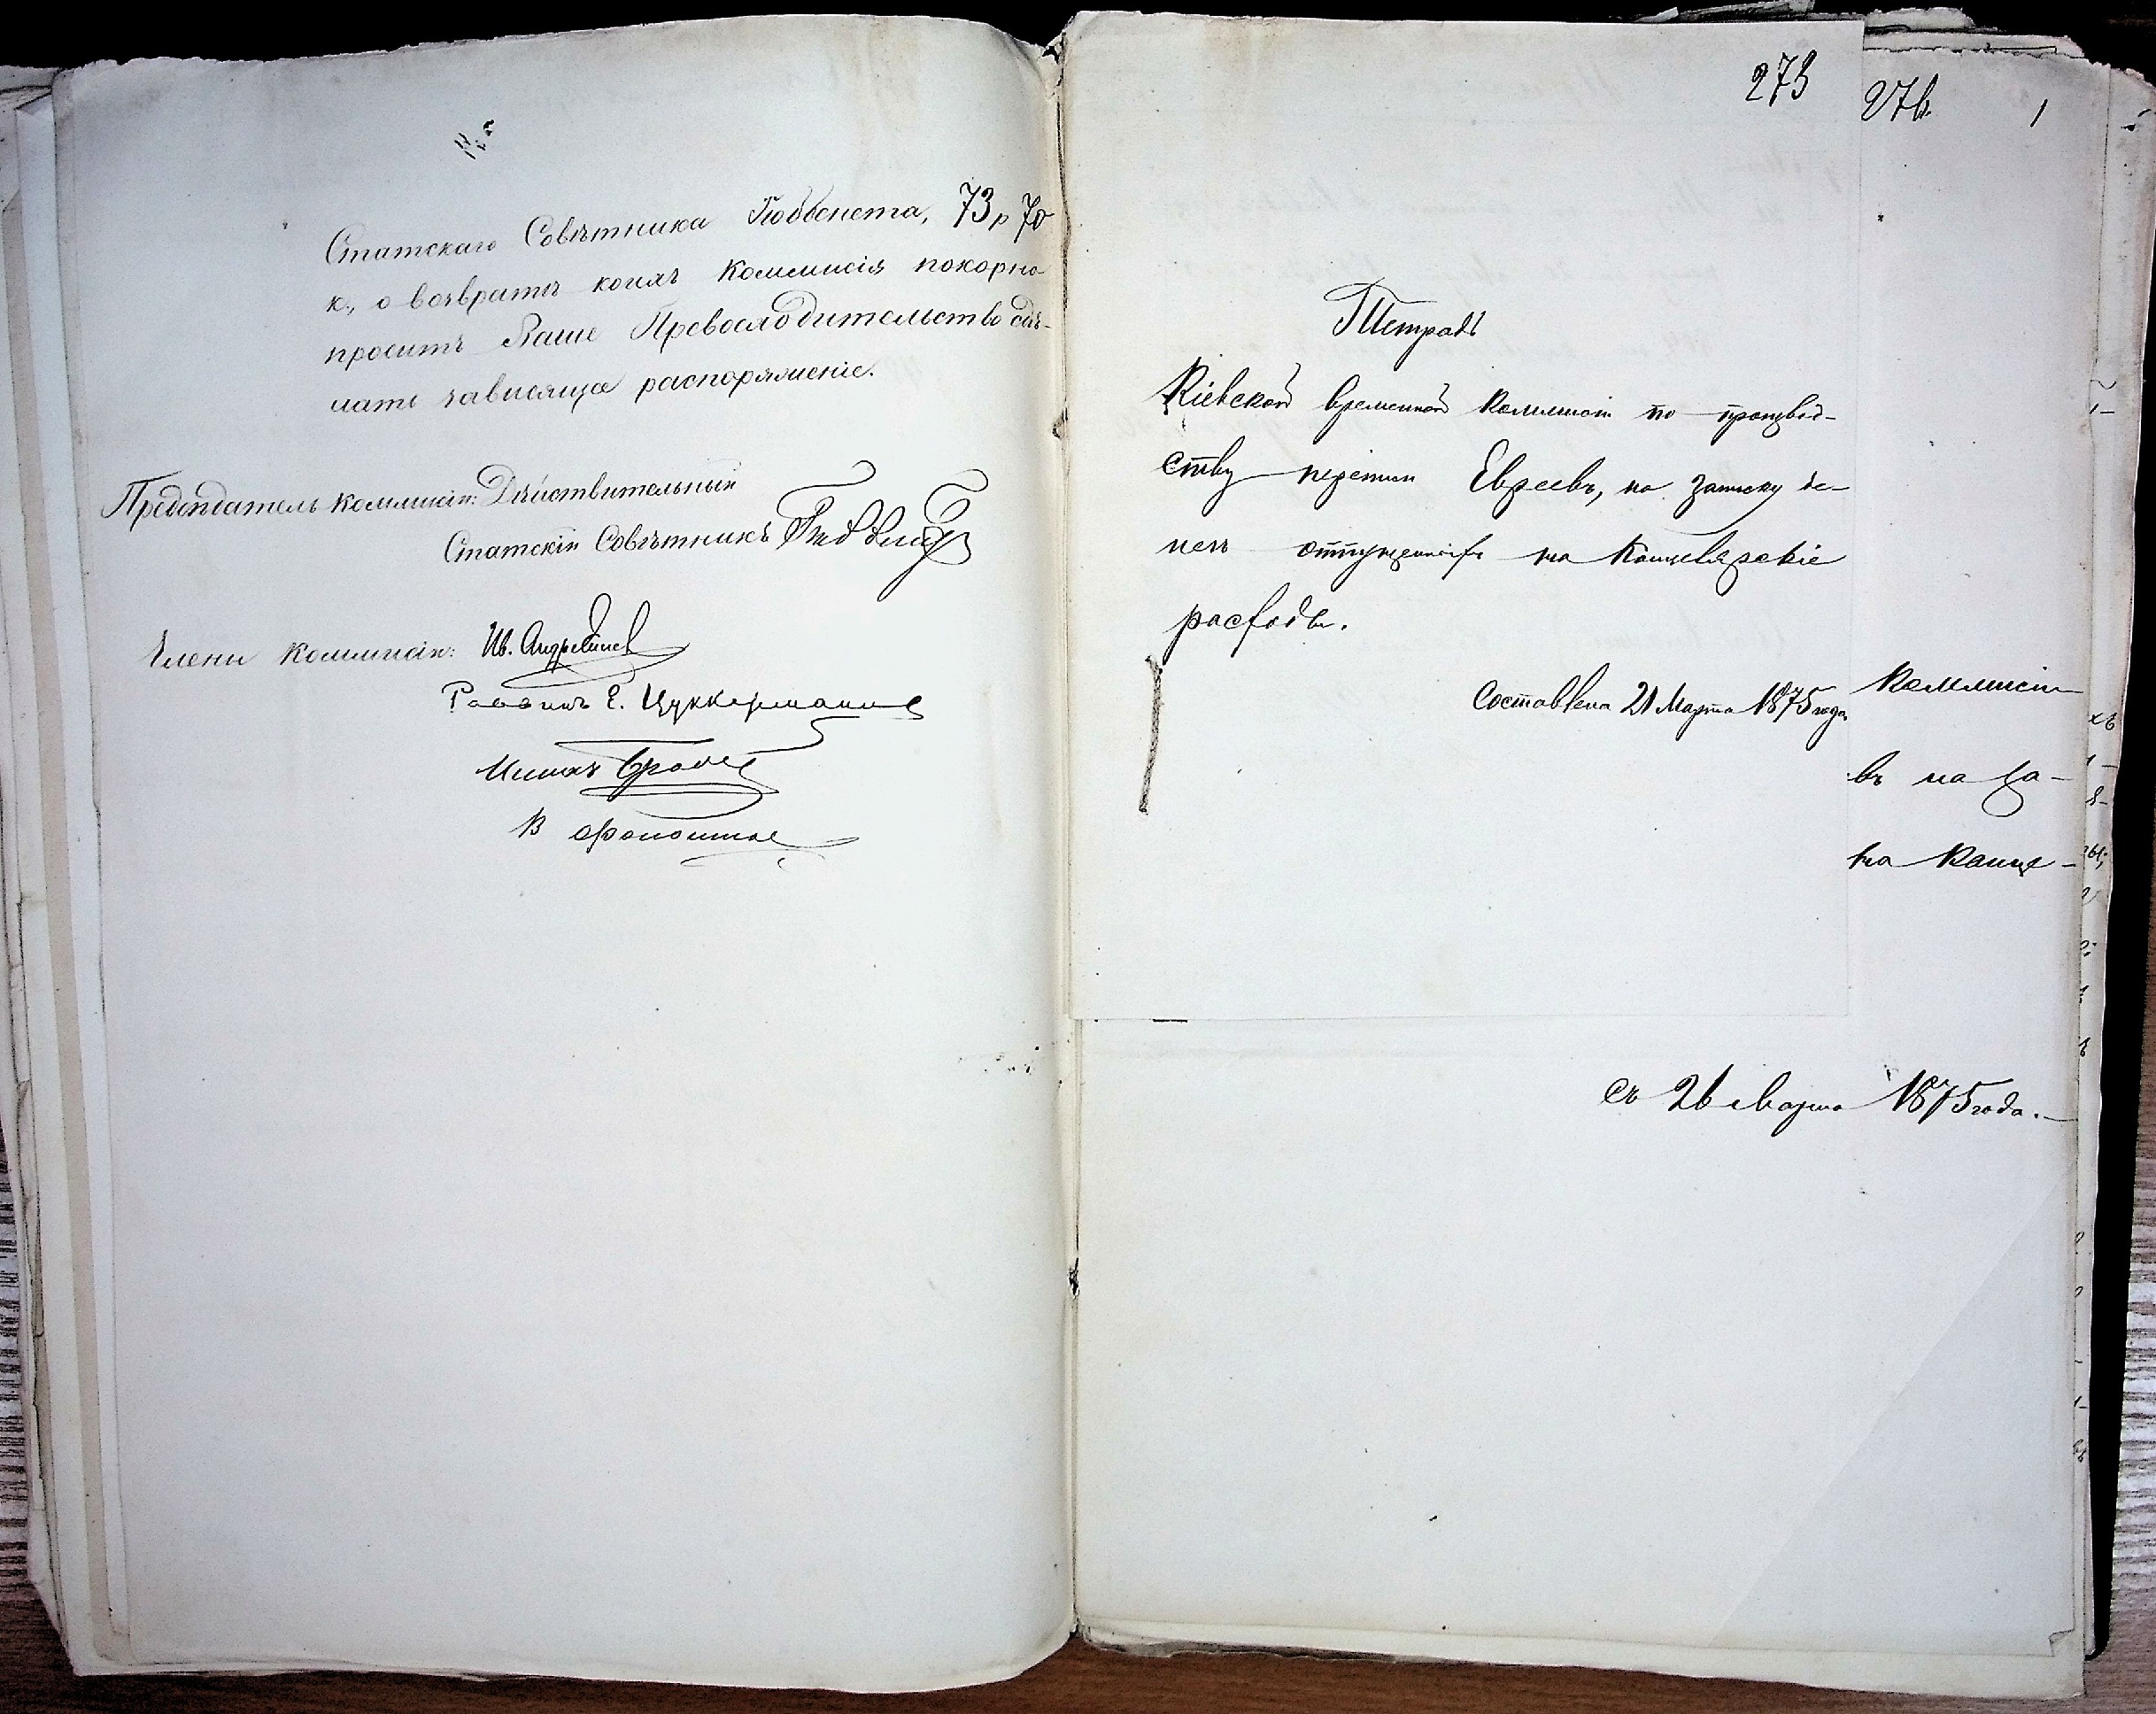 Статскаго Совѣтника Гюббенета, 73 р 70
к., о возвратѣ коихъ Коммисія покорно
проситъ Ваше Превосходительство сдѣ-
лать зависящее распоряженіе.
Предсѣдатель Коммисіи: Дѣйствительный
Статскій Совѣтникъ Гюббенетъ
Члены Коммисіи:
Раввинъ Е. Цуккерманъ
273
Тетрадь
Кіевской временной Коммисіи по производ-
ству переписи Евреевъ, на записку де-
негъ отпущенныхъ на Канцелярскіе
расходы.
Составлена 21 Марта 1875 года
276. 1
Коммисіи
въ на за-
на Канце-
съ 26 Марта 1875 года.